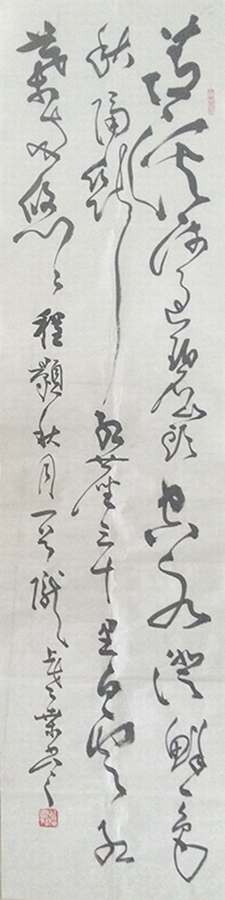 清溪流過碧山頭空水澄鮮一色
秋隔斷紅塵三十里白雲紅
葉兩悠〻程顥秋月一首